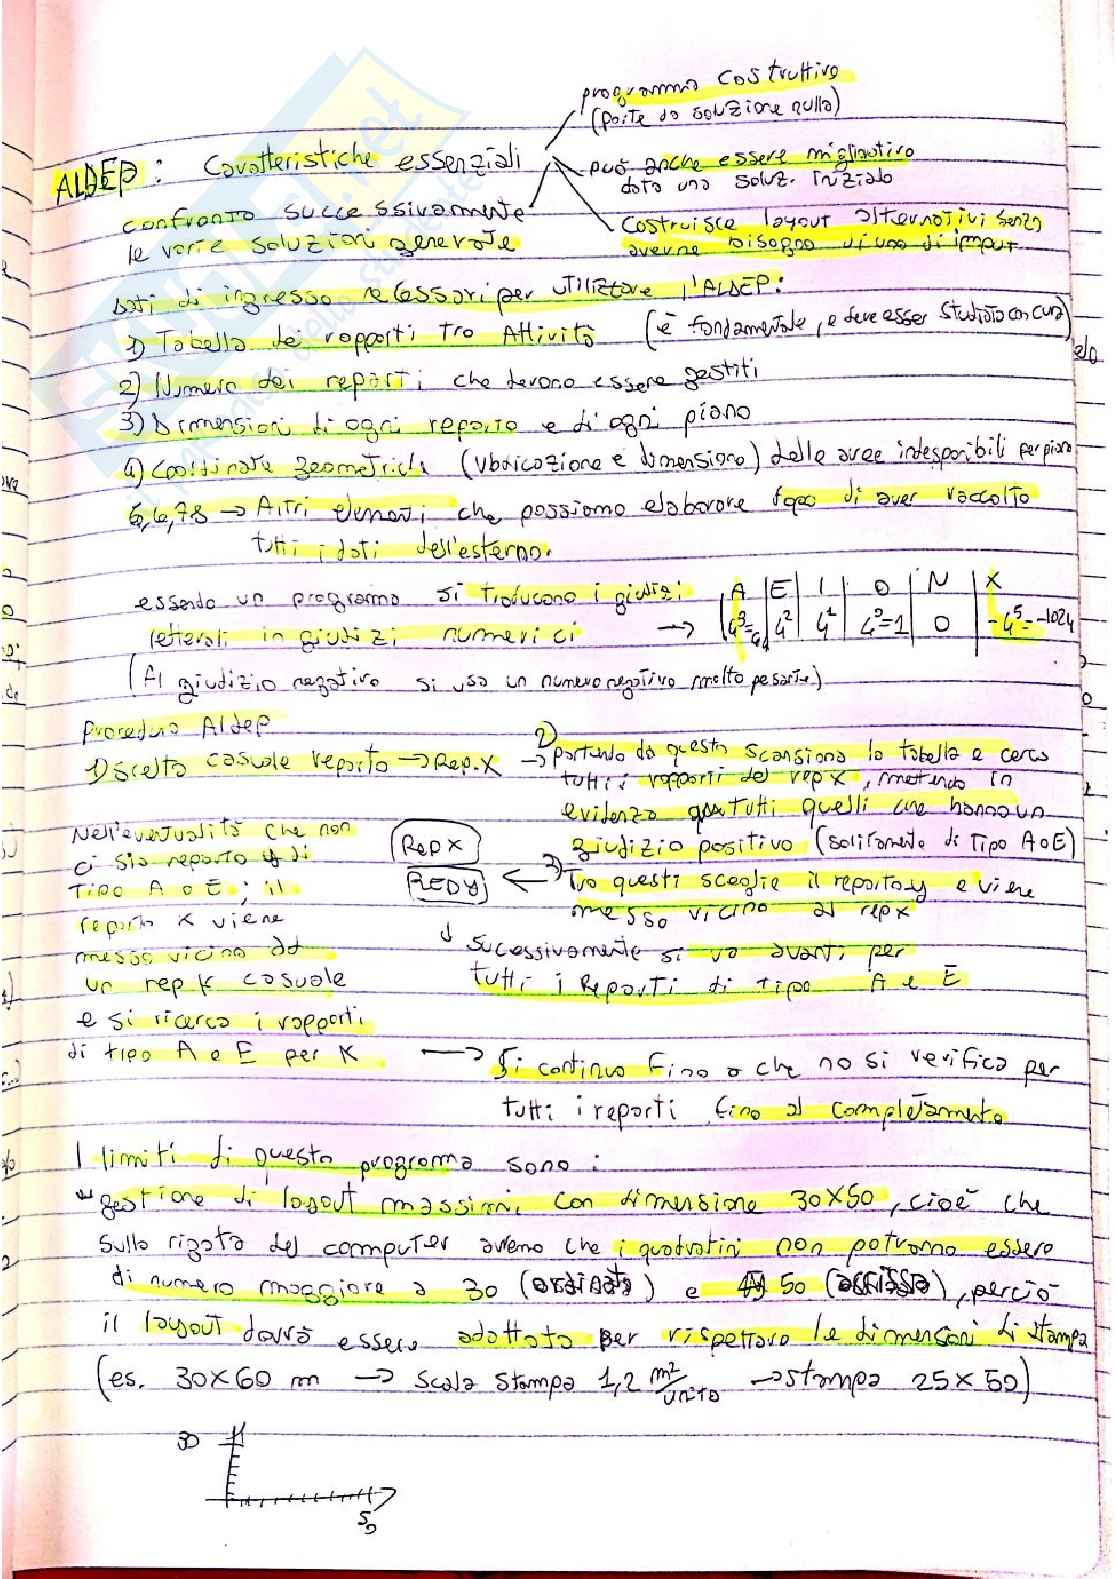 programma costruttivo
(parte da soluzione nulla)
ALDEP: Caratteristiche essenziali
può anche essere migliorativo
data una soluz. Iniziale
confronta successivamente
le varie soluzioni generate
Costruisce layout alternativi senza
averne bisogno di uno di imput
Dati di ingresso necessari per utilizzare l'ALDEP:
1) Tabella dei rapporti tra Attività (è fondamentale, e deve esser studiata con cura)
2) Numero dei reparti che devono essere gestiti
3) Dimensioni di ogni reparto e di ogni piano
4) Coordinate geometriche (ubicazione e dimensione) delle aree indisponibili per piano
5,6,7,8 → Altri elementi che possiamo elaborare dopo di aver raccolto
tutti i dati dell'esterno.
essendo un programma si traducono i giudizi
letterali in giudizi numerici →
A | E | I | O | N | X
4³= | 4² | 4² | 4³=1 | 0 | -4⁵=-1024
(Al giudizio negativo si usa un numero negativo molto pesante)
Procedura Aldep
1) Scelta casuale reparto → Rep.X
2) → partendo da questo scansiona la tabella e cerca
tutti i rapporti del rep X, mettendo in
evidenza tutti quelli che hanno un
giudizio positivo (solitamente di tipo A o E)
3) Tra questi sceglie il reparto y e viene
messo vicino al rep X
Rep X
REP y
↓ Sucessivamente si va avanti per
tutti i Reparti di tipo A e E
Nell'eventualità che non
ci sia reparto y di
tipo A o E, il
reparto x viene
messo vicino ad
un rep K casuale
e si ricerca i rapporti
di tipo A e E per K
→ Si continua fino a che no si verifica per
tutti i reparti fino al completamento
I limiti di questo programma sono:
gestione di layout massimi con dimensione 30x50, cioè che
sulla rigata del computer avremo che i quadratini non potranno essere
di numero maggiore a 30 (ordinata) e 50 (ascissa), perciò
il layout dovrà essere adattato per rispettare le dimensioni di stampa
(es. 30x60 m → scala stampa 1,2 m²/unità → stampa 25x50)
30
50